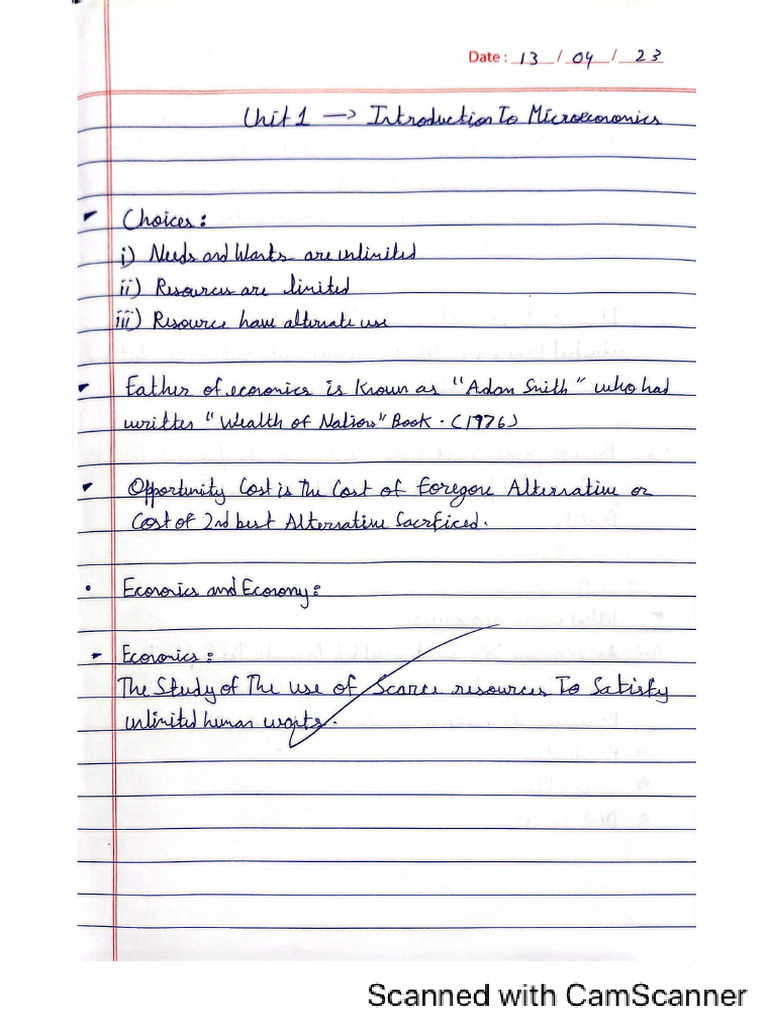 Date : 13 / 04 / 23
Unit 1 —> Introduction To Microeconomics
Choices :
i) Needs and Wants are unlimited
ii) Resources are limited
iii) Resource have alternate use
Father of economics is known as "Adam Smith" who had
written "Wealth of Nations" Book. (1976)
Opportunity Cost is The Cost of Foregone Alternative or
Cost of 2nd best Alternative Sacrficed.
• Economics and Economy :
Economics :
The Study of The use of Scarce resources To Satisfy
unlimited human wants.
Scanned with CamScanner